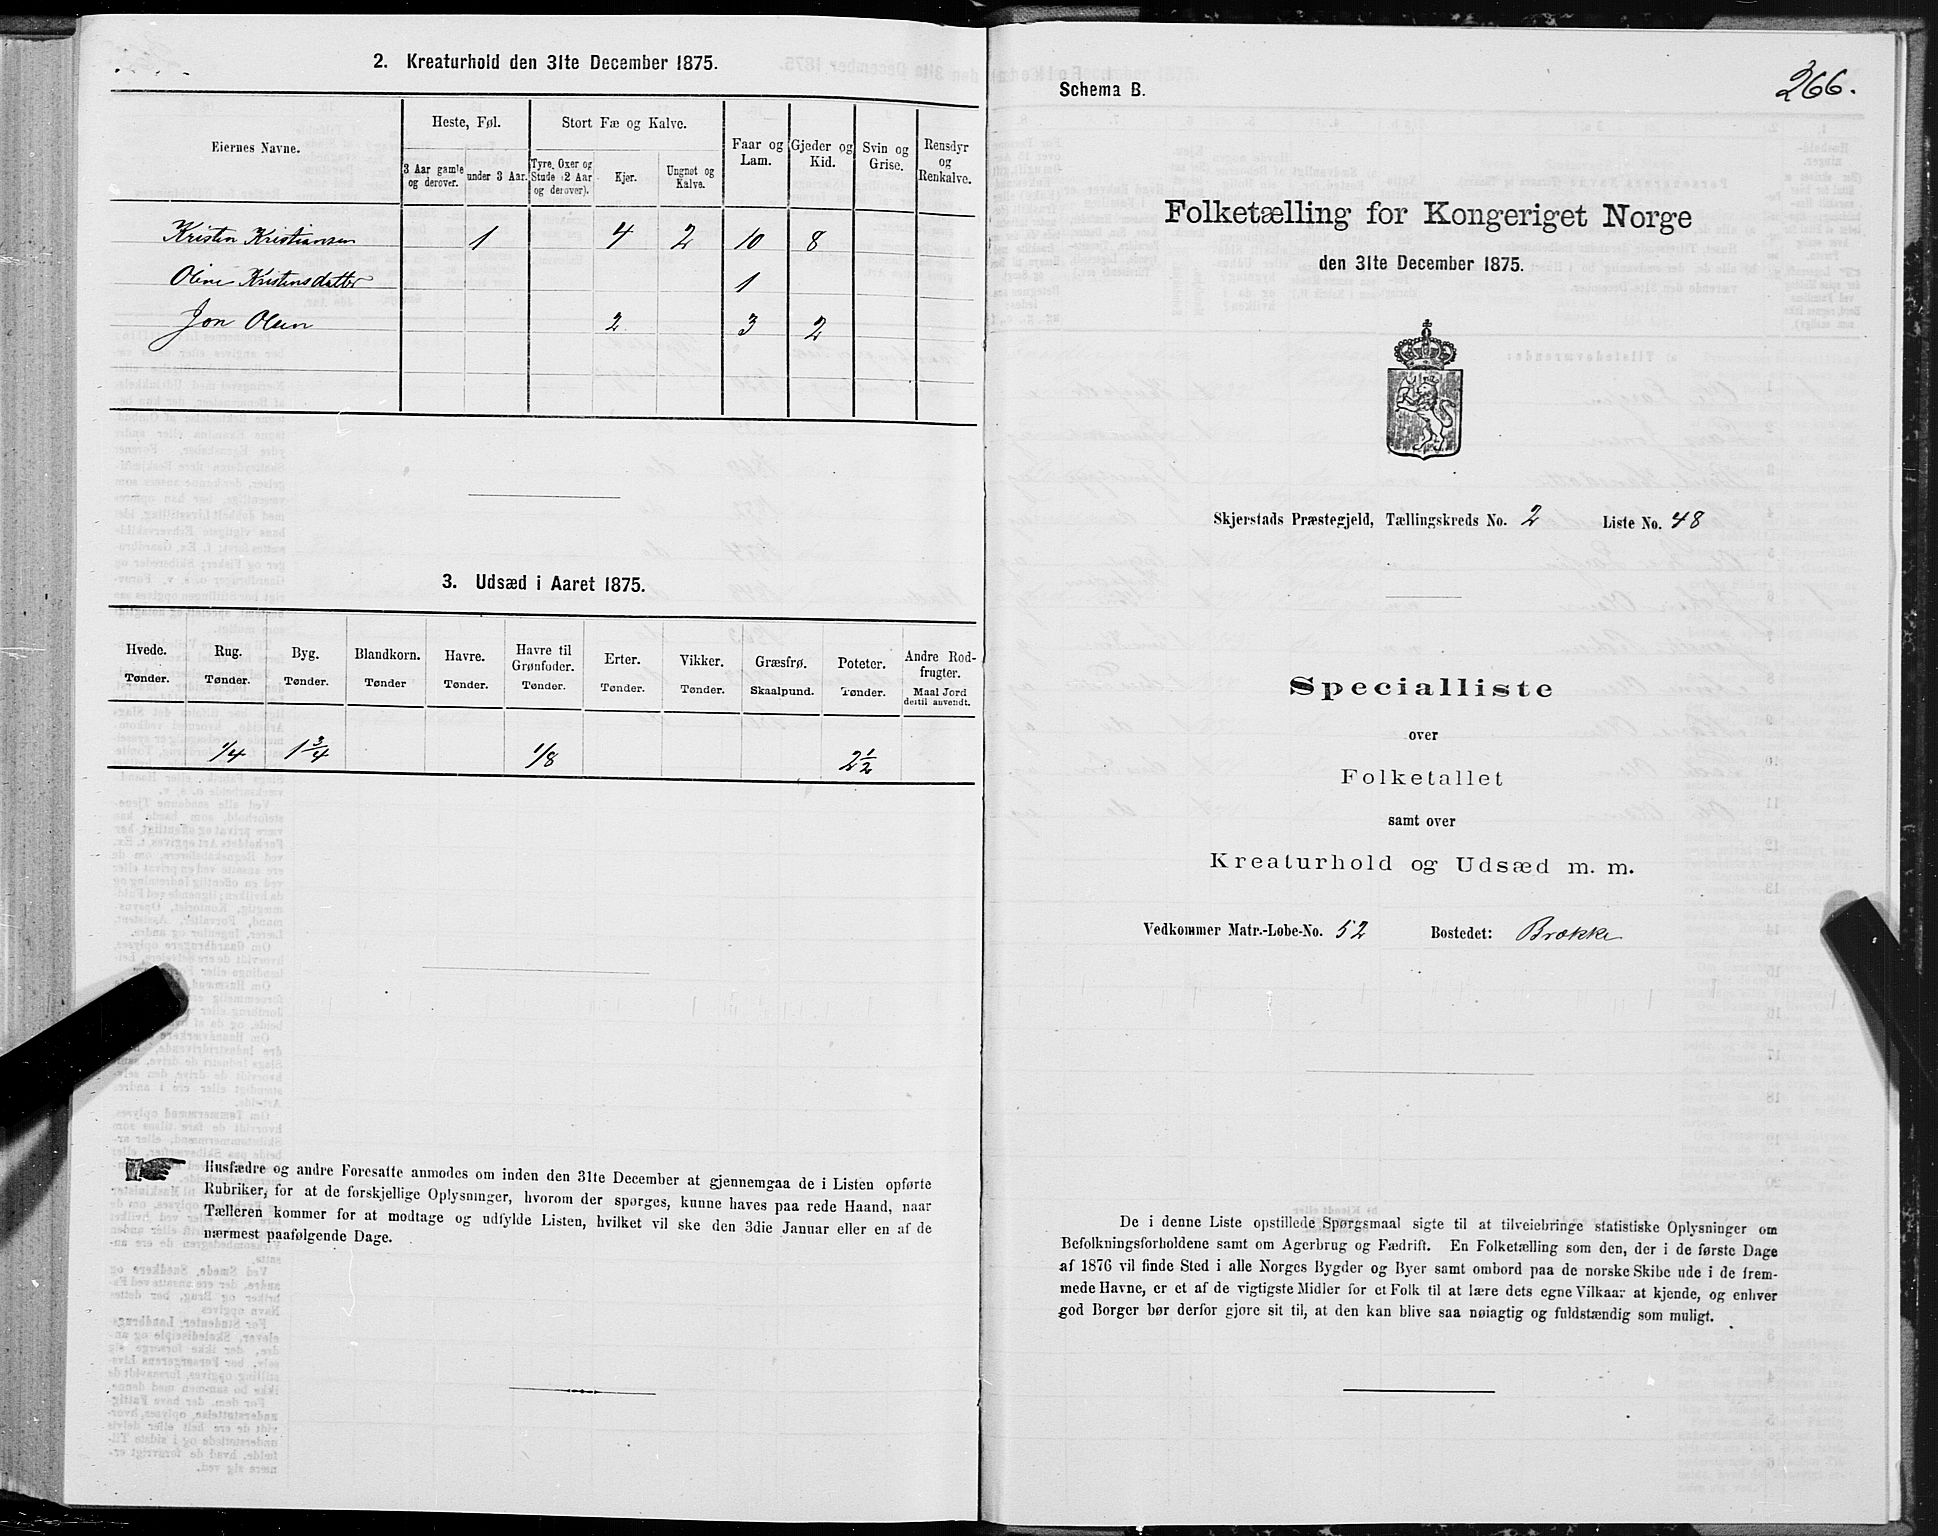 2. Kreaturhold den 31te December 1875.
Eiernes Navne.
Heste, Føl.
Stort Fæ og Kalve.
Faar og Lam.
Gjeder og Kid.
Svin og Grise.
Rensdyr og Renkalve.
3 Aar gamle og derover.
under 3 Aar.
Tyre, Oxer og Stude (2 Aar og derover).
Kjer.
Ungnøt og Kalve.
Kristen Kristiansen 1 4 2 10 8
Oline Kristensdatter 1
Jon Olsen 2 3 2
3. Udsæd i Aaret 1875.
Hvede. Rug. Byg. Blandkorn. Havre. Havre til Grønfoder. Erter. Vikker. Græsfrø. Poteter. Andre Rodfrugter.
Tønder. Tønder. Tønder. Tønder Tønder. Tønder. Tønder. Tønder. Skaalpund. Tønder. Maal Jord dertil anvendt.
1/4 1 3/4 1/8 2 1/2
Husfædre og andre Foresatte anmodes om inden den 31te December at gjennemgaa de i Listen opførte
Rubriker, for at de forskjellige Oplysninger, hvorom der spørges, kunne haves paa rede Haand, naar
Tælleren kommer for at modtage og udfylde Listen, hvilket vil ske den 3die Januar eller en af de
nærmest paafølgende Dage.
266.
Schema B.
Folketælling for Kongeriget Norge
den 31te December 1875.
Skjerstads Præstegjeld, Tællingskreds No. 2 Liste No. 48
Specialliste
over
Folketallet
samt over
Kreaturhold og Udsæd m. m.
Vedkommer Matr.-Løbe-No. 52 Bostedet: Brække
De i denne Liste opstillede Spørgsmaal sigte til at tilveiebringe statistiske Oplysninger om
Befolkningsforholdene samt om Agerbrug og Fædrift. En Folketælling som den, der i de første Dage
af 1876 vil finde Sted i alle Norges Bygder og Byer samt ombord paa de norske Skibe ude i de frem-
mede Havne, er et af de vigtigste Midler for et Folk til at lære dets egne Vilkaar at kjende, og enhver
god Borger bør derfor gjøre sit til, at den kan blive saa nøiagtig og fuldstændig som muligt.